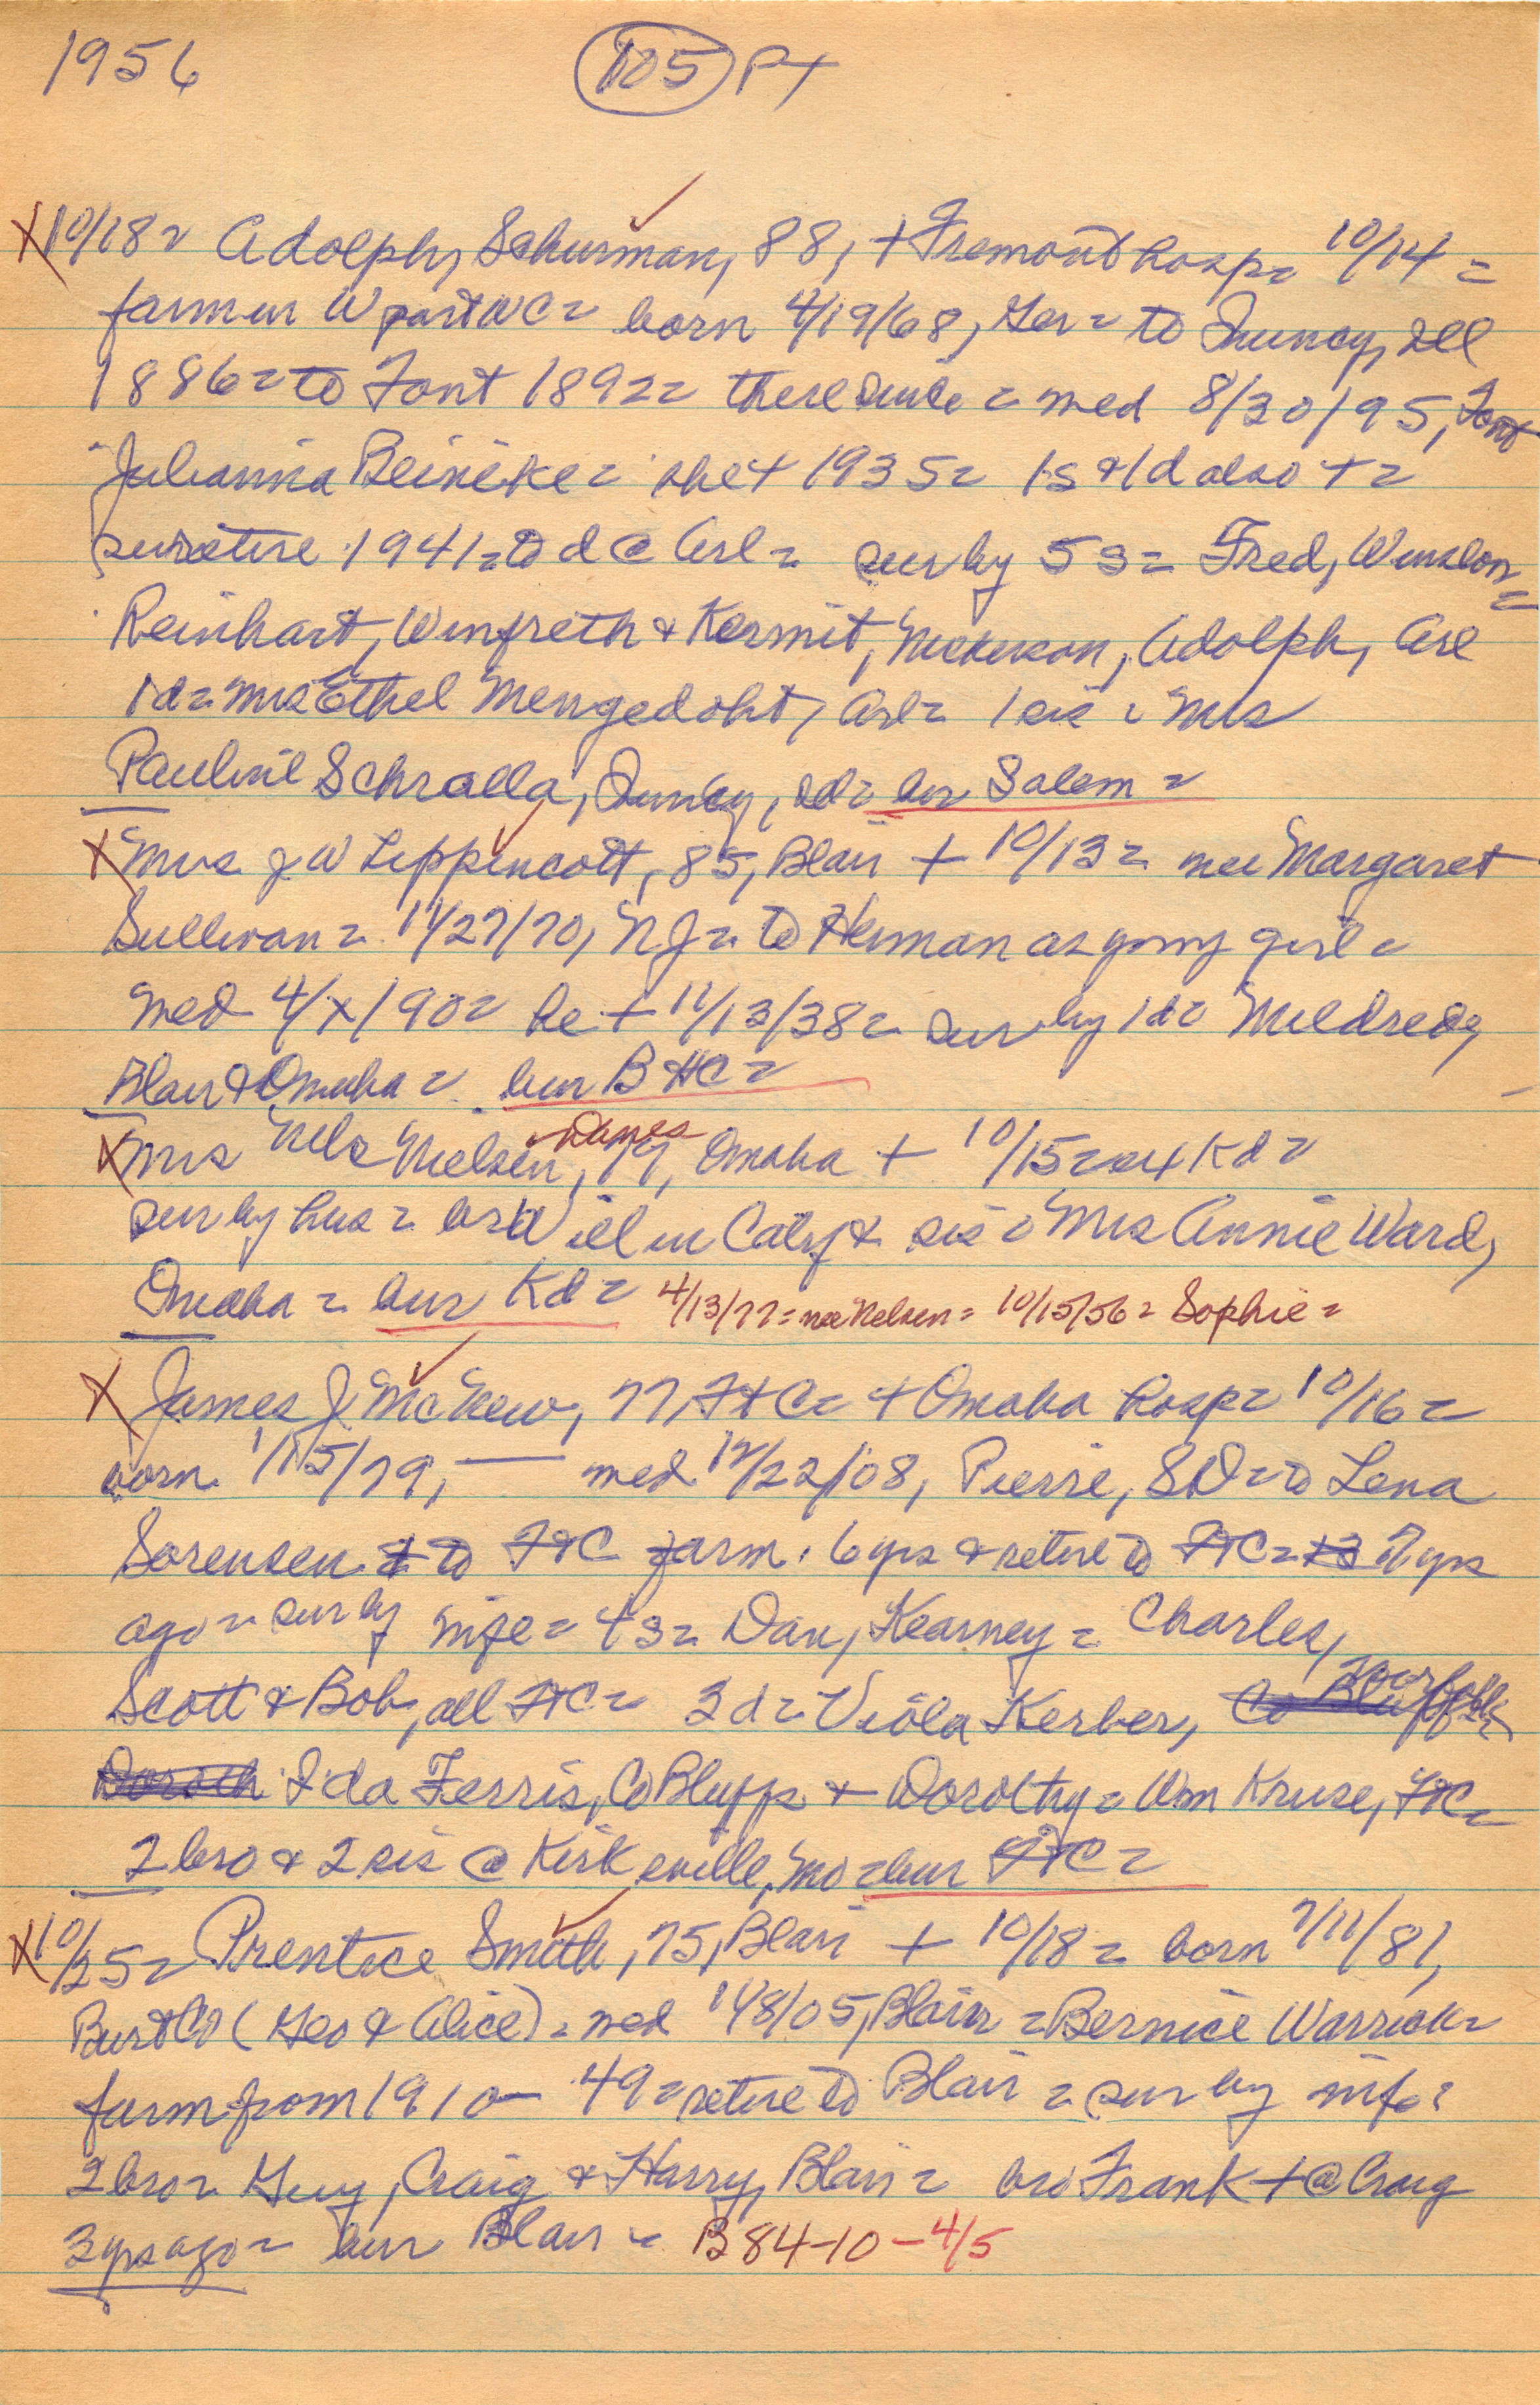 1956 105 Pt
X 10/18 = Adolph Schurman, 88, + Fremont hosp = 10/14 =
farmer W part WC = born 4/19/68, Ger = to Quincy, Ill
1886 = to Font 1892 = there since = med 8/30/95, Font
Julianna Beineke = she + 1935 = 1s & 1d also + =
retire 1941 = to d @ Arl = sur by 5 s = Fred, Winslow =
Reinhart, Winfreth & Kermit, Nickerson, Adolph, Arl
1d = Mrs Ethel Mengedoht, Arl = 1 sis = Mrs
Pauline Schralla, Quincy, = bur Salem =
X Mrs J W Lippincott, 85, Blair + 10/13 = nee Margaret
Sullivan = 11/27/70, NJ = to Herman as young girl =
med 4/x/90 = he + 11/13/38 = sur by 1d = Mildred,
Blair & Omaha = bur B =
X Mrs Nels Nielsen, Danes 79, Omaha + 10/15 = ex Kd =
sur by hus = bro Will in Calif & sis = Mrs Annie Ward,
Omaha = bur Kd = 4/13/77 = nee Nelsen = 10/15/56 = Sophie =
X James J McNew, 77, FtC = + Omaha hosp = 10/16 =
born 1/15/79, — med 12/22/08, Pierre, SD = to Lena
Sorensen to FtC farm 6 yrs & retire to FtC = 7 yrs
ago = sur by wife = 4s = Dan, Kearney = Charles,
Scott & Bob, all FtC = 3d = Viola Kerber, Co Bluffs Norfolk
Doroth Ida Ferris, Co Bluffs & Dorothy = Wm Kruse, FtC =
2 bro & 2 sis @ Kirksville, Mo = bur FtC =
X 10/25 = Prentice Smith, 75, Blair + 10/18 = born 7/11/81,
Burt Co (Geo & Alice) = med 1/18/05, Blair = Bernice Warrick =
farm from 1910 - 49 = retire to Blair = sur by wife =
2 bro = Guy, Craig & Harry, Blair = bro Frank + @ Craig
3 yrs ago = bur Blair = B 84-10-4/5